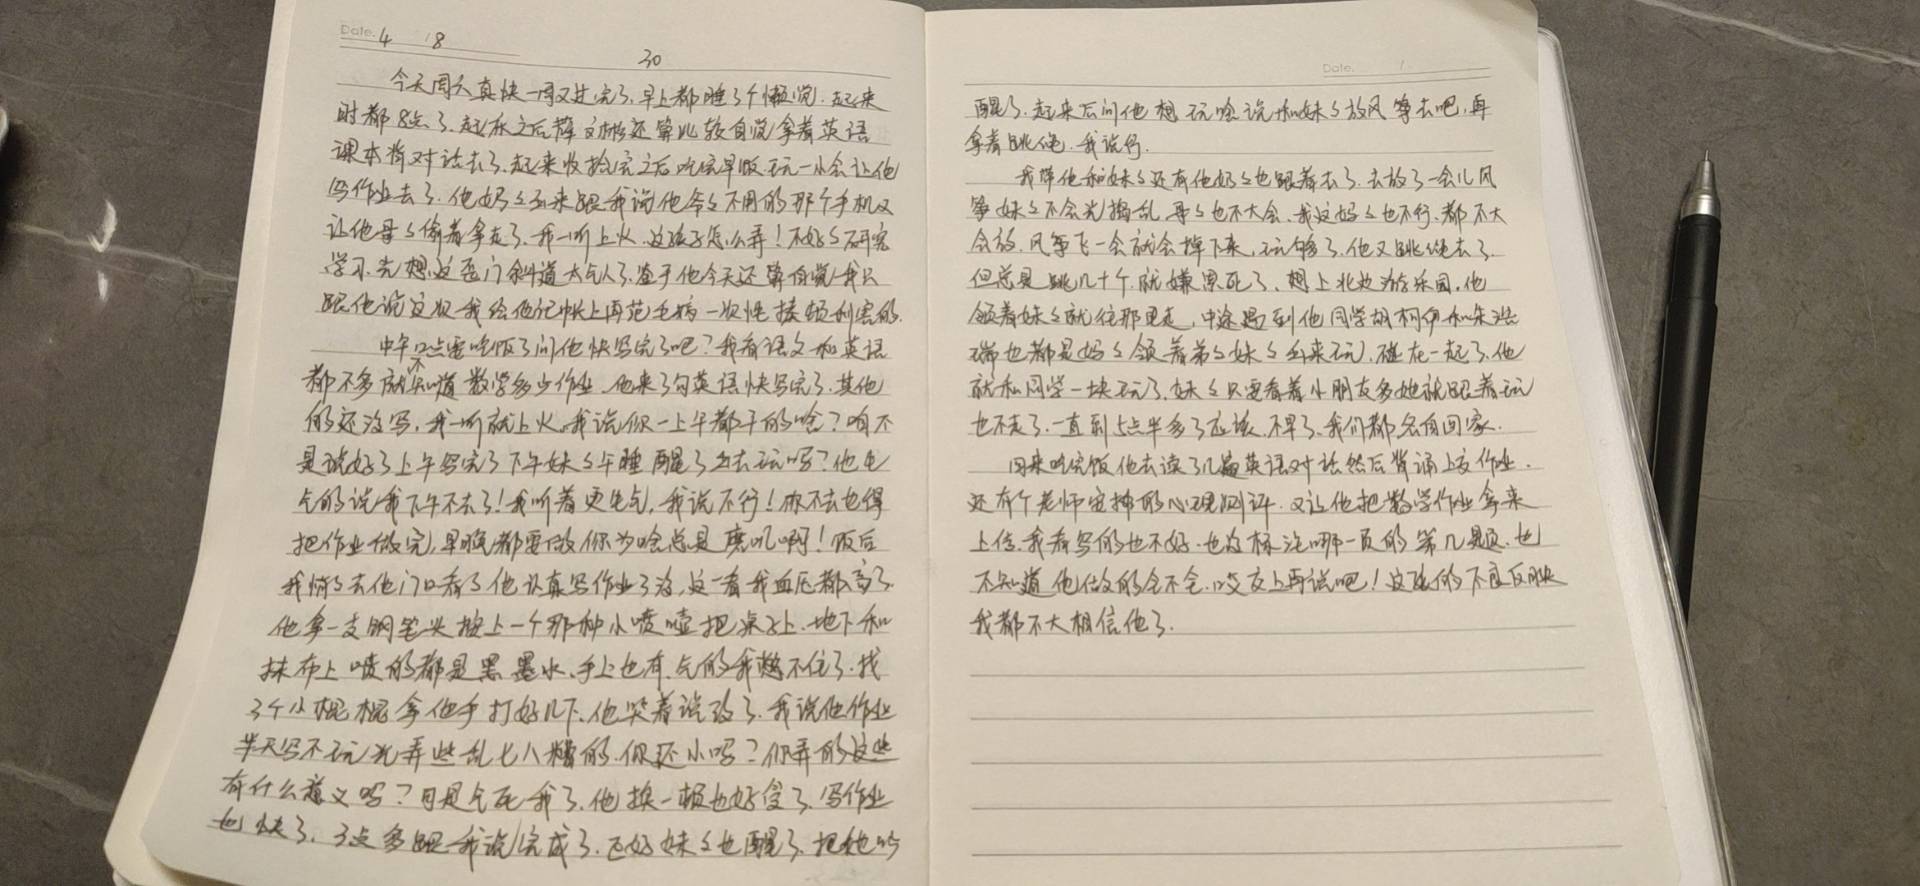 Date. 4 / 8
30
今天周六真快一周又过完了.早上都睡了个懒觉.起来
时都8点了.起床之后还算比较自觉拿着英语
课本背对话去了.起来收拾完之后吃完早饭.玩一小会让他
写作业去了.他妈妈出来跟我说他爷爷不用的那个手机又
让他哥哥偷着拿走了.我一听上火.这孩子怎么弄!不好好研究
学习.光想这歪门斜道太气人了.鉴于他今天还算自觉我只
跟他说这次我给他记帐上再范毛病一次性揍顿利害的.
中午12点要吃饭了问他快写完了吧?我看语文和英语
都不多就不知道数学多少作业.他来了句英语快写完了.其他
的还没写.我一听就上火.我说你一上午都干的啥?咱不
是说好了上午写完了下午妹妹午睡醒了出去玩吗?他生
气的说我下午不去了!我听着更生气.我说不行!你不去也得
把作业做完,早晚都要做你为啥总是磨叽啊!饭后
我悄悄去他门口看了他认真写作业了没,这一看我血压都高了.
他拿一支钢笔头按上一个那种小喷壶把桌子上.地下和
抹布上喷的都是黑墨水.手上也有.气的我憋不住了.找
了个小棍棍拿他手打好几下.他哭着说改了.我说他作业
半天写不玩光弄些乱七八糟的.你还小吗?你弄的这些
有什么意义吗?可是气死我了.他揍一顿也好受了.写作业
也快了.3点多跟我说完成了.正好妹妹也醒了.把他
醒了.起来后问他想玩啥说和妹妹放风筝去吧.再
拿着跳绳.我说行.
我伴他和妹妹还有他奶奶也跟着去了.去放了一会儿风
筝妹妹不会光捣乱.哥哥也不大会.我这妈妈也不行.都不大
会放.风筝飞一会就会掉下来.玩够了.他又跳绳去了.
但总是跳几十个就嫌累死了.想上北边游乐园.他
领着妹妹就往那里走,中途遇到他同学胡柯伊和朱浩
瑞也都是妈妈领着弟弟妹妹出来玩.碰在一起了.他
就和同学一块玩了.妹妹只要看着小朋友多她就跟着玩
也不走了.一直到5点半多了应该不早了.我们都各自回家.
回来吃完饭他去读了几遍英语对话然后背诵上交作业.
还有个老师安排的心理测评.又让他把数学作业拿来
上传.我看写的也不好.也没标注哪一页的第几题.也
不知道他做的会不会.咬交上再说吧!这孩的不良反映
我都不大相信他了.
Date. /